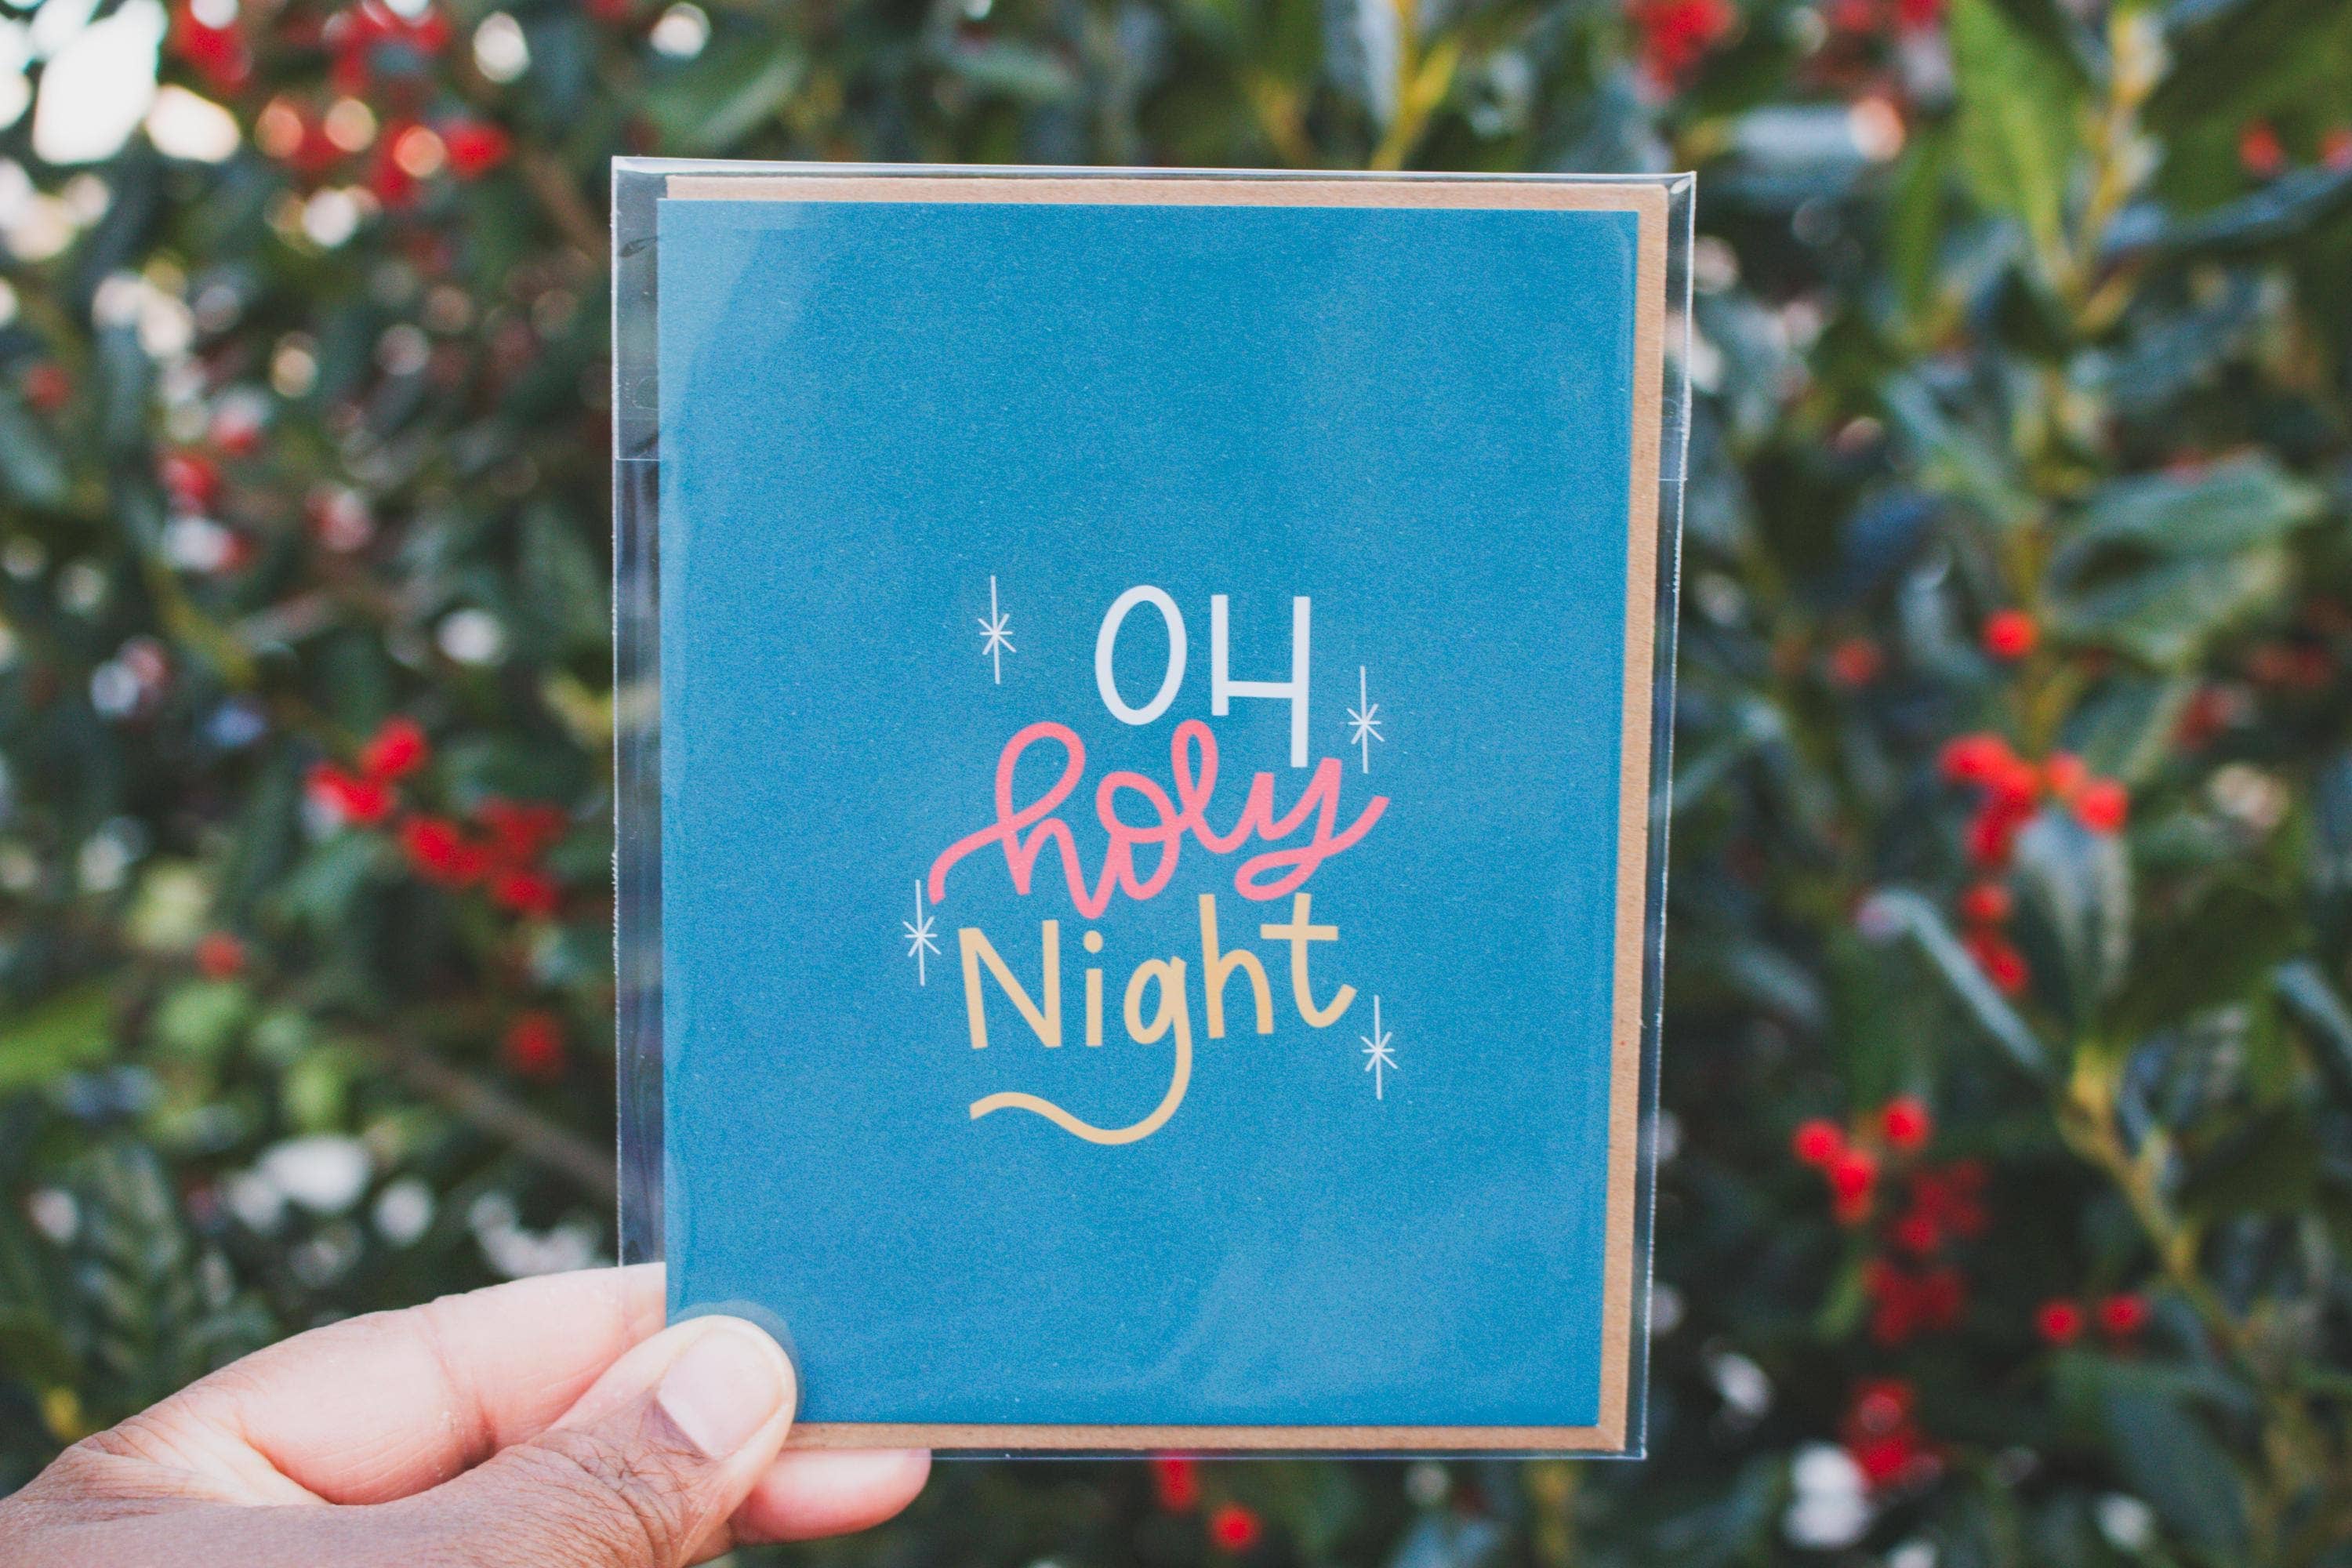 OH
holy
Night